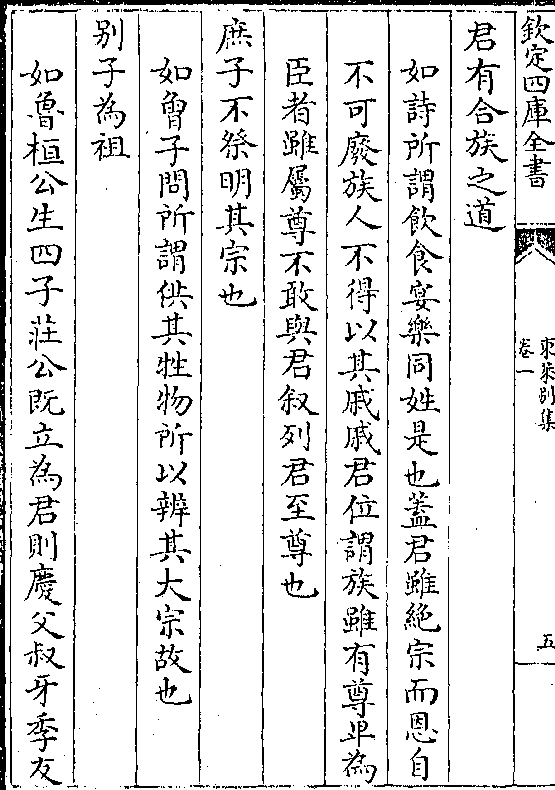 欽定四庫全書
東萊別集
卷一
五
君有合族之道
如詩所謂飲食宴樂同姓是也蓋君雖絶宗而恩自
不可廢族人不得以其戚戚君位謂族雖有尊卑為
臣者雖屬尊不敢與君叙列君至尊也
庶子不祭明其宗也
如曾子問所謂供其牲物所以辨其大宗故也
别子為祖
如魯桓公生四子莊公既立為君則慶父叔牙季友